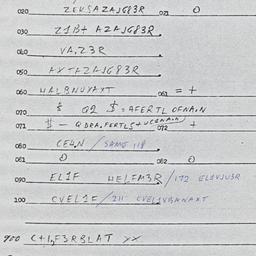 020 ZEKSAZAJG83R 021 0
030 Z1B+ AZAJG83R
040 VAZ3R
050 AXTAZAJG83R
060 WALBNUYAXT 061 = +
070 $ Q2 $=AFERTL OFNAIN
071 $ - QDRA.FERTLS+ 072 +
080 CEWN / SAME 118
081 0 082 0
090 EL1F WELFM3R / 172 ELEVJU3R
100 CVEL1F / 211 CVEL1VBANAXT
900 C+1,F3RBLAT XX